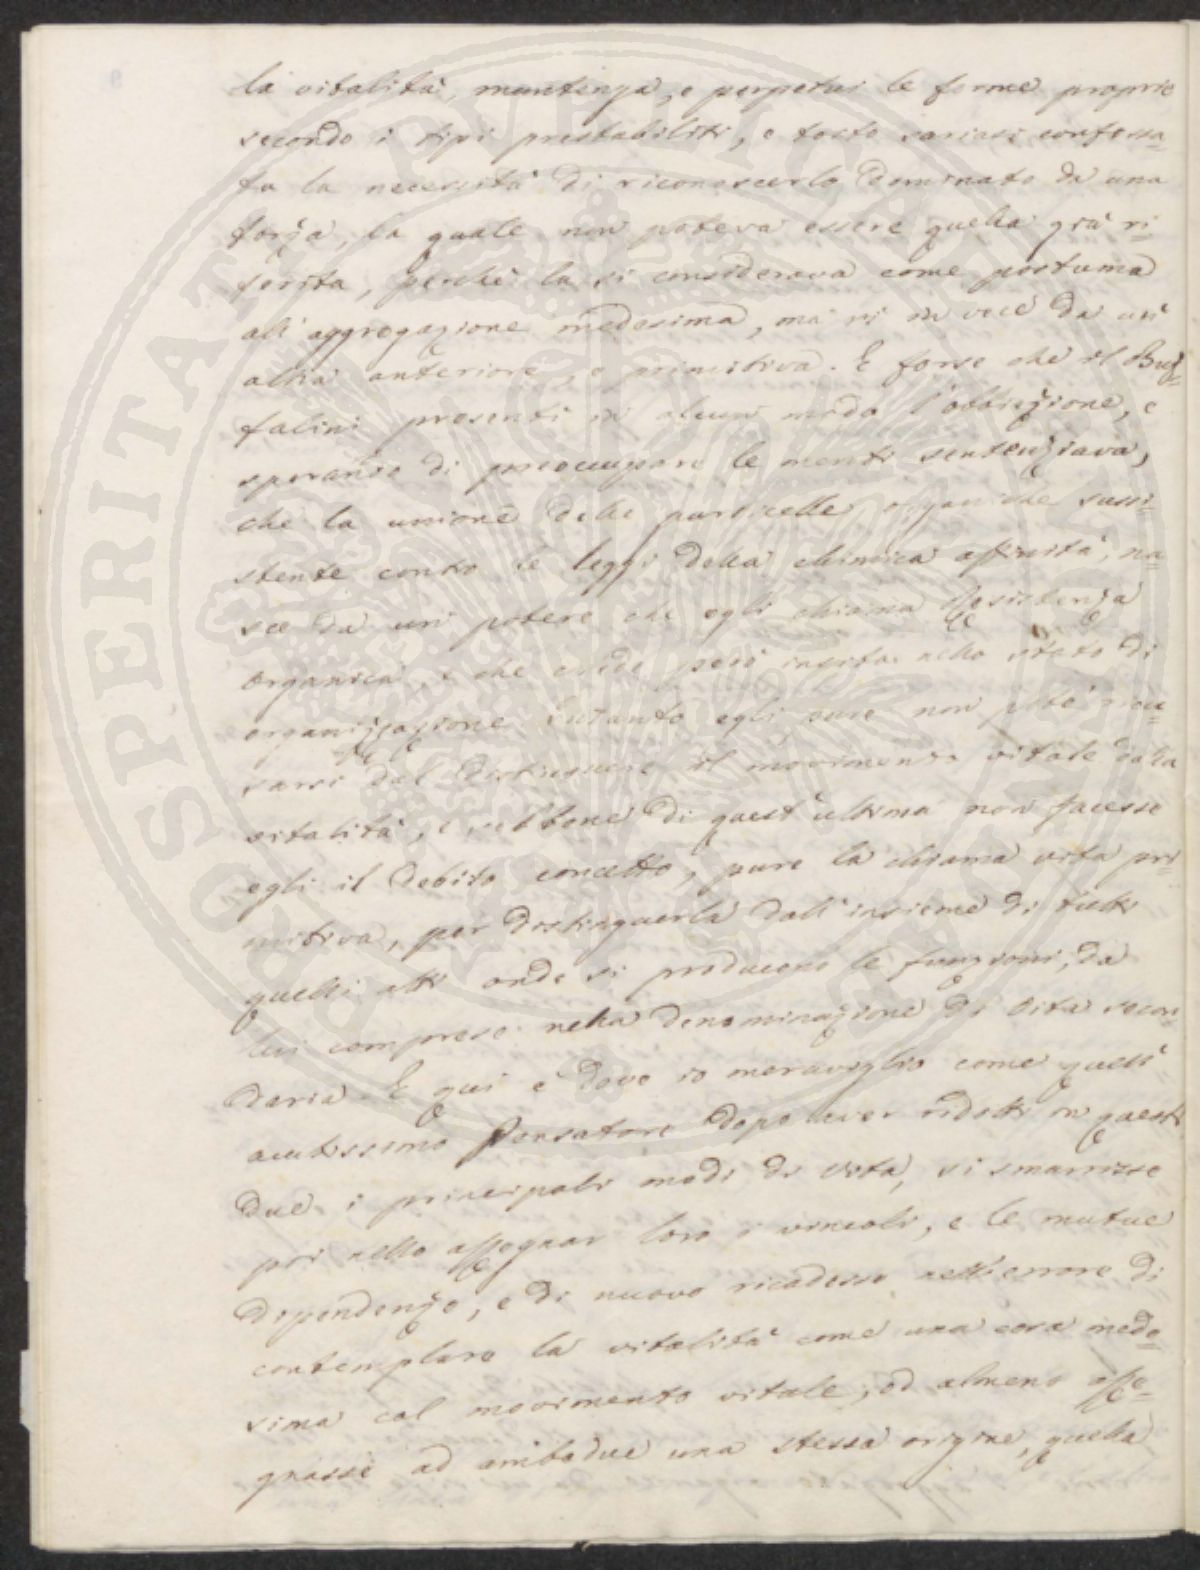 la vitalità, mantenga, e perpetui le forme proprie
secondo i tipi prestabiliti, e tosto confessa=
ta la necessità di riconoscerlo dominato da una
forza, la quale non poteva essere quella già ri=
ferita, perchè la si considerava come postuma
all'aggregazione medesima, ma si in vece da un'
altra anteriore, e primitiva. E forse che il Buf=
falini presentì in alcun modo l'obbiezione, e
sperando di preoccupare le menti sentenziava,
che la unione delle particelle organiche sussi=
stente contro le leggi della chimica affinità, na=
sce da un potere che egli chiama Assistenza
organica, e che crede però insita nello stato di
organizzazione. Intanto egli pure non potè ricu=
sarsi dal distinguere il movimento vitale dalla
vitalità, e sebbene di quest'ultima non facesse
egli il debito concetto, pure la chiama vita pri=
mitiva, per distinguerla dall'insieme di tutti
quelli atti onde si producono le funzioni, da
lui compreso nella denominazione di vita secon=
daria. E qui è dove io meraviglio come quell'
acutissimo Pensatore dopo aver ridotti in questi
due i principali modi di vita, si smarrisse
poi nello assegnar loro i vincoli, e le mutue
dipendenze, e di nuovo ricadesse nell'errore di
contemplare la vitalità come una cosa mede=
sima col movimento vitale, od almeno asse=
gnasse ad ambedue una stessa origine, quella
PROSPERITATI PVBLICAE